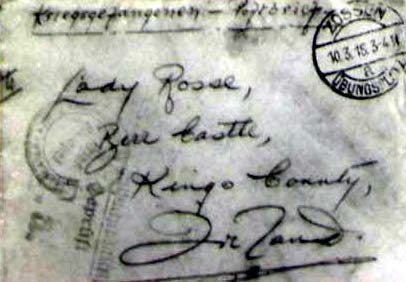 Kriegsgefangenen – Postbrief
ZOSSEN
10.3.15.3-4N
a
ÜBUNGSPL
Lady Rosse,
Birr Castle,
Kings County,
Ireland.
Geprüft